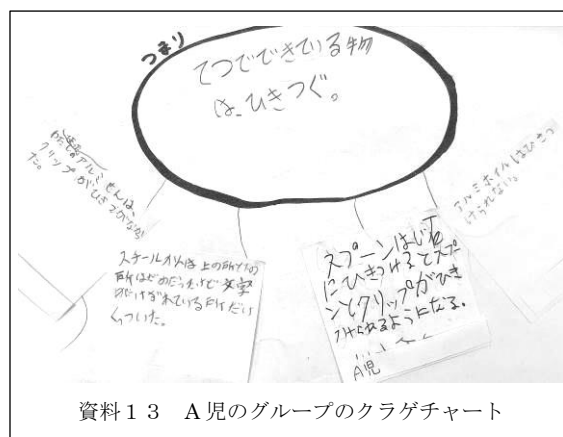 つまり
てつでできている物
は、ひきつぐ。
アルミせんは、
クリップがひきつがなかっ
た。
スチールカンは上の所と下の
所はだめだったけど文字
がけずれている所だけ
くっついた。
スプーンはじ石
にひきつけるとスプー
ンとクリップがひき
つけられるようになる。
A児
アルミホイルはひきつ
けられない。
資料１３　A児のグループのクラゲチャート